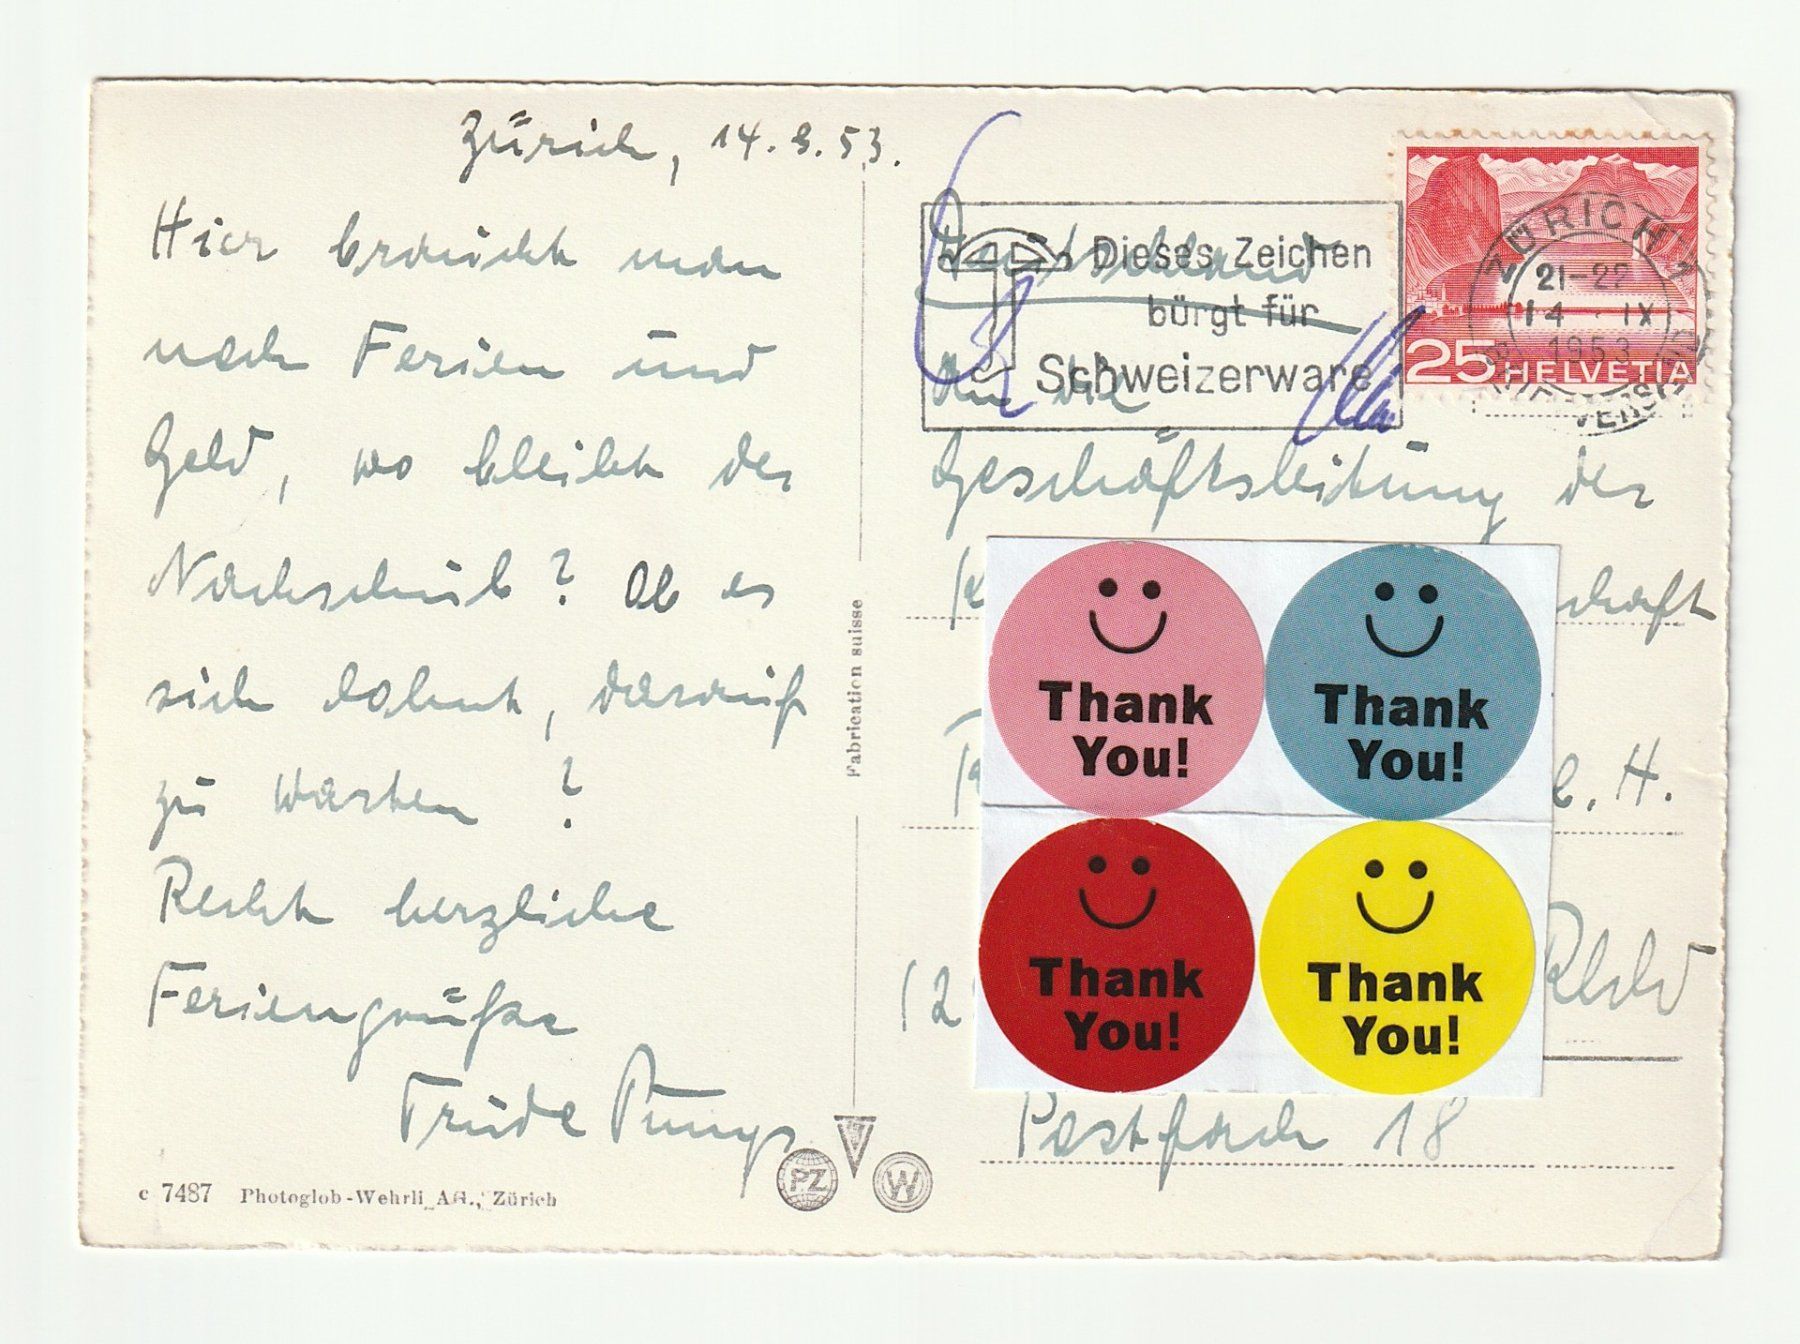 Zürich, 14.9.53.
Hier braucht man
nach Ferien und
Geld, wo bleibt der
Nachschub? Ob es
sich lohnt, darauf
zu warten?
Recht herzliche
Feriengrüße
Trude
c 7487 Photoglob-Wehrli AG., Zürich
Fabrication suisse
PZ
W
Dieses Zeichen
bürgt für
Schweizerware
ZÜRICH
21-22
14 IX
1953
BRIEFVERSAND
25 HELVETIA
Deutschland
An die
Geschäftsleitung der
schaft
H.
Postfach 18
Thank
You!
Thank
You!
Thank
You!
Thank
You!